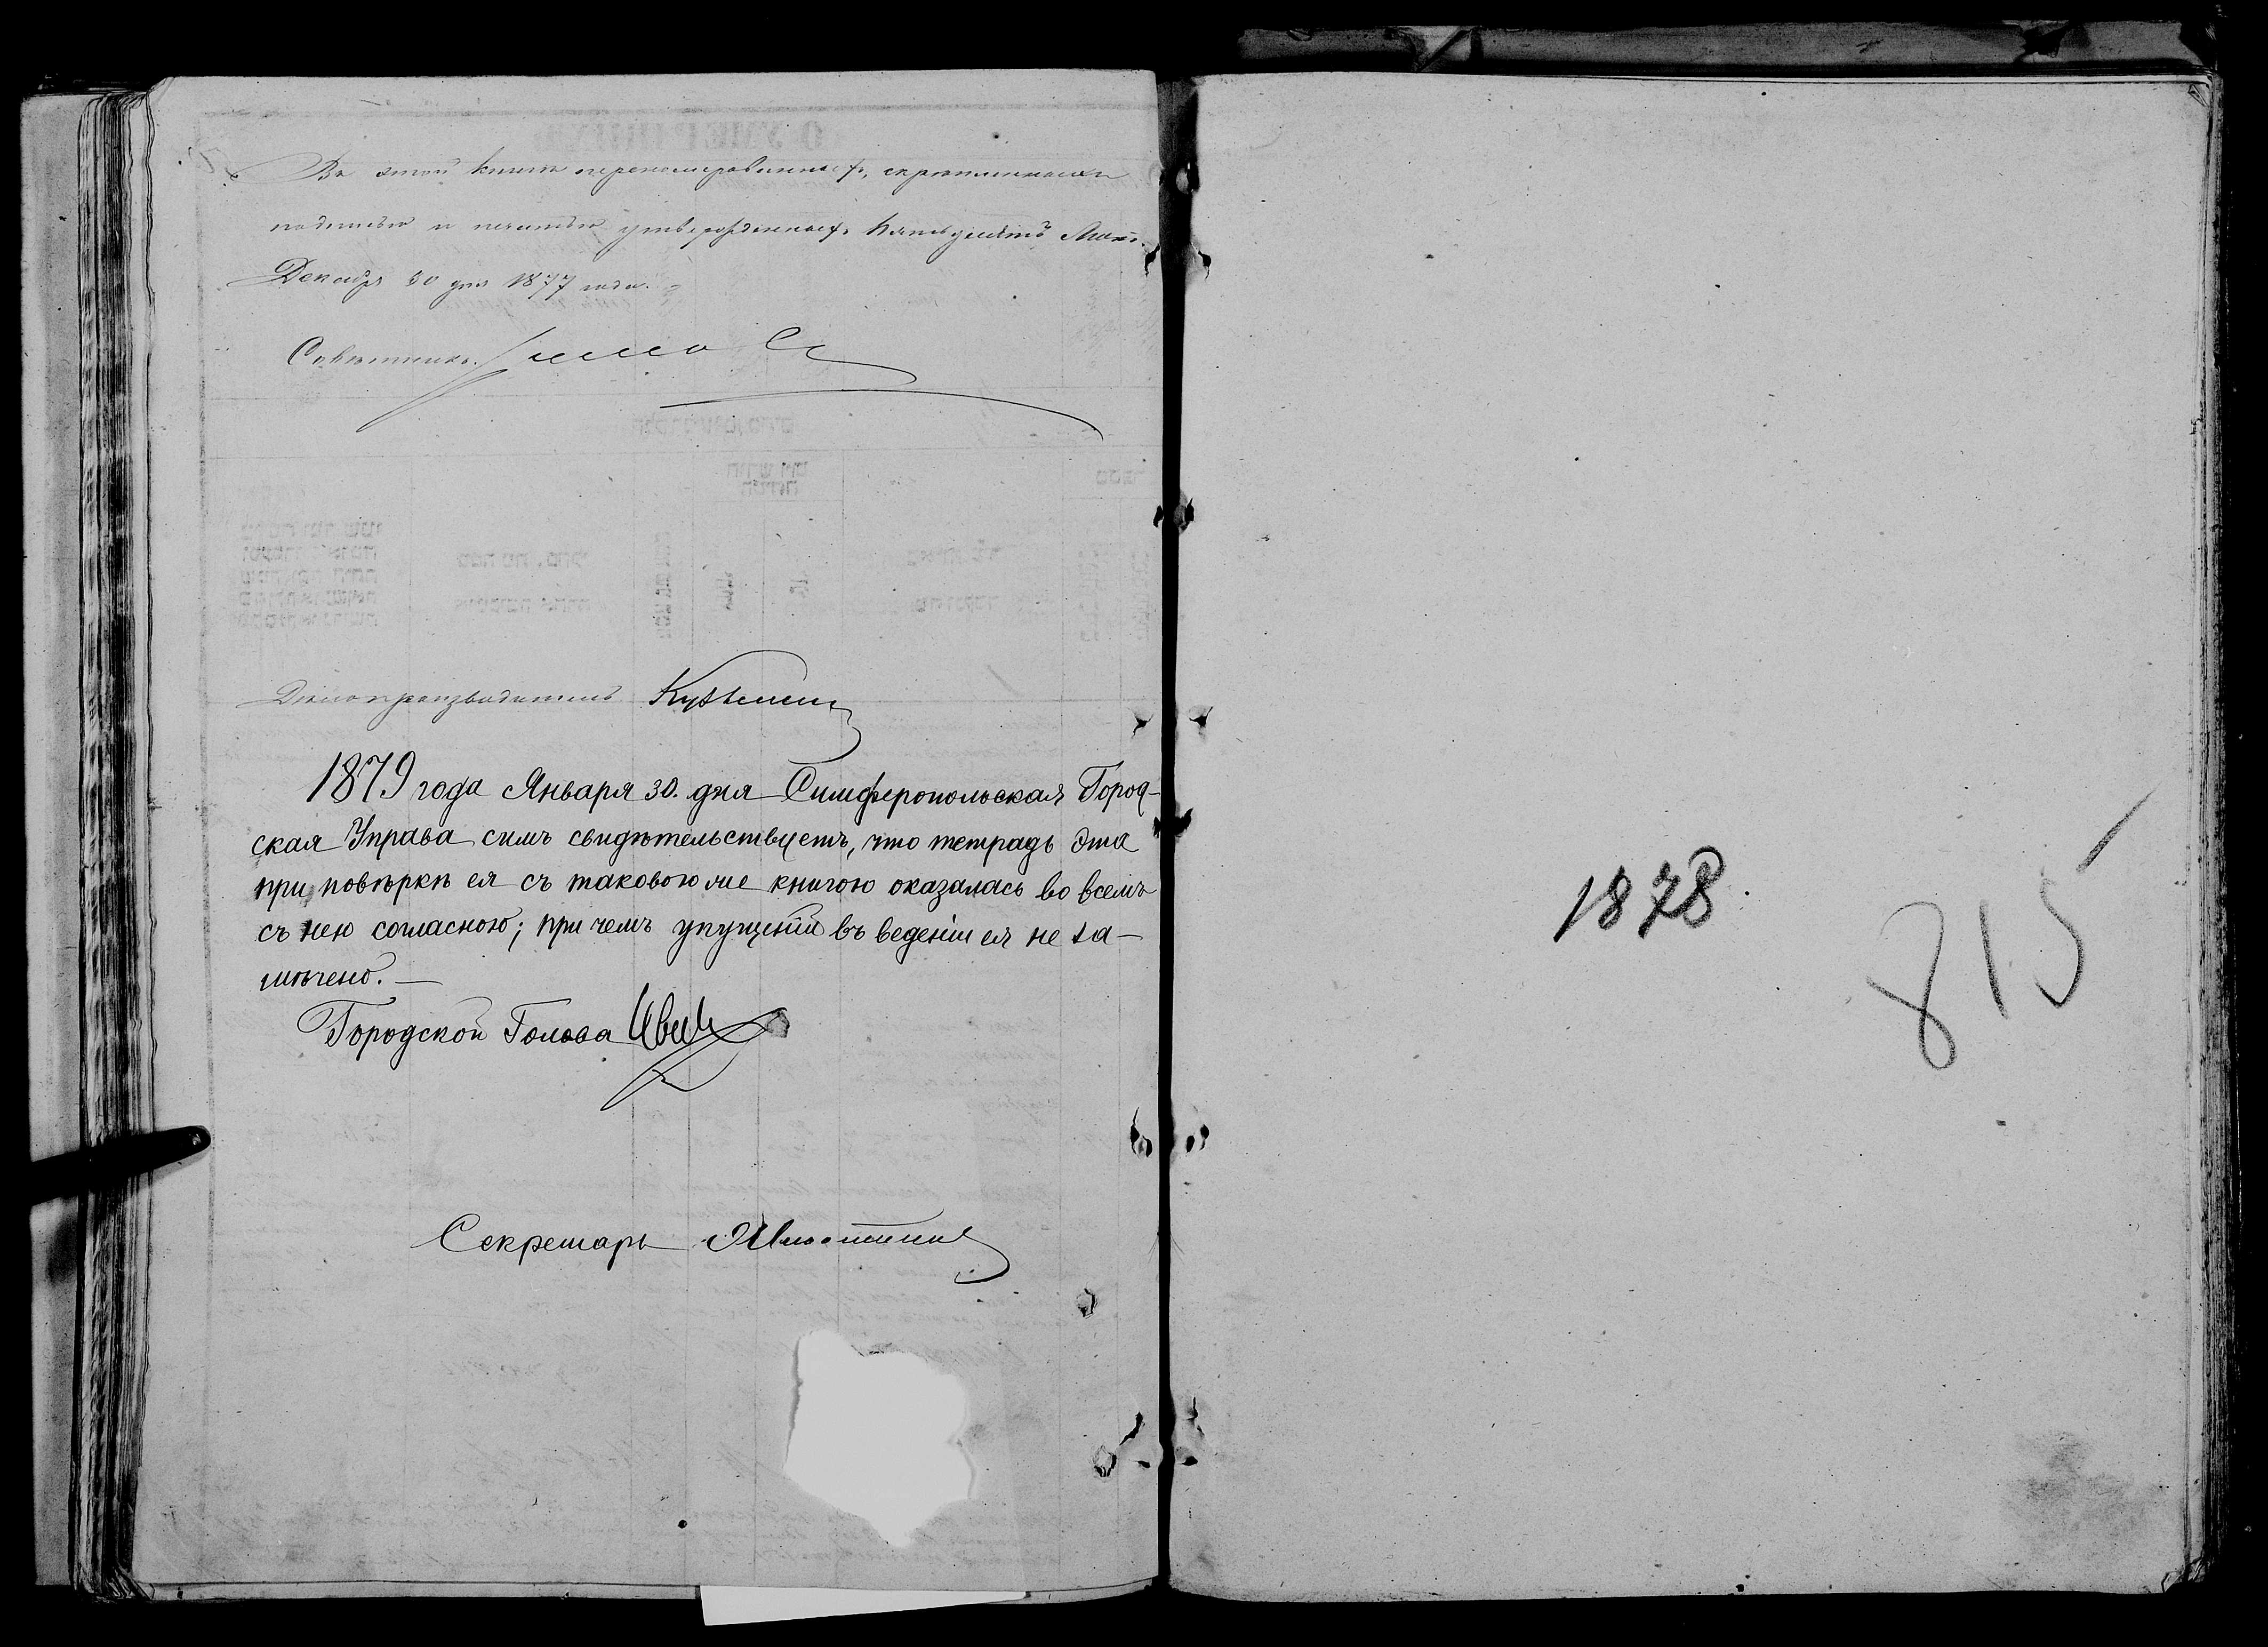 Въ этой книгѣ перенумерованныхъ, скрѣпленныхъ
подписью и печатью утвержденныхъ пятьдесятъ
Декабря 30 дня 1877 года.
Совѣтникъ
Дѣлопроизводитель
1879 года Января 30. дня Симферопольская Город-
ская Управа симъ свидѣтельствуетъ, что тетрадь эта
при повѣркѣ ея съ таковою же книгою оказалась во всемъ
съ нею согласною; при чемъ упущеній въ веденіи ея не за-
мѣчено. —
Городской Голова
Секретарь
1878.
815